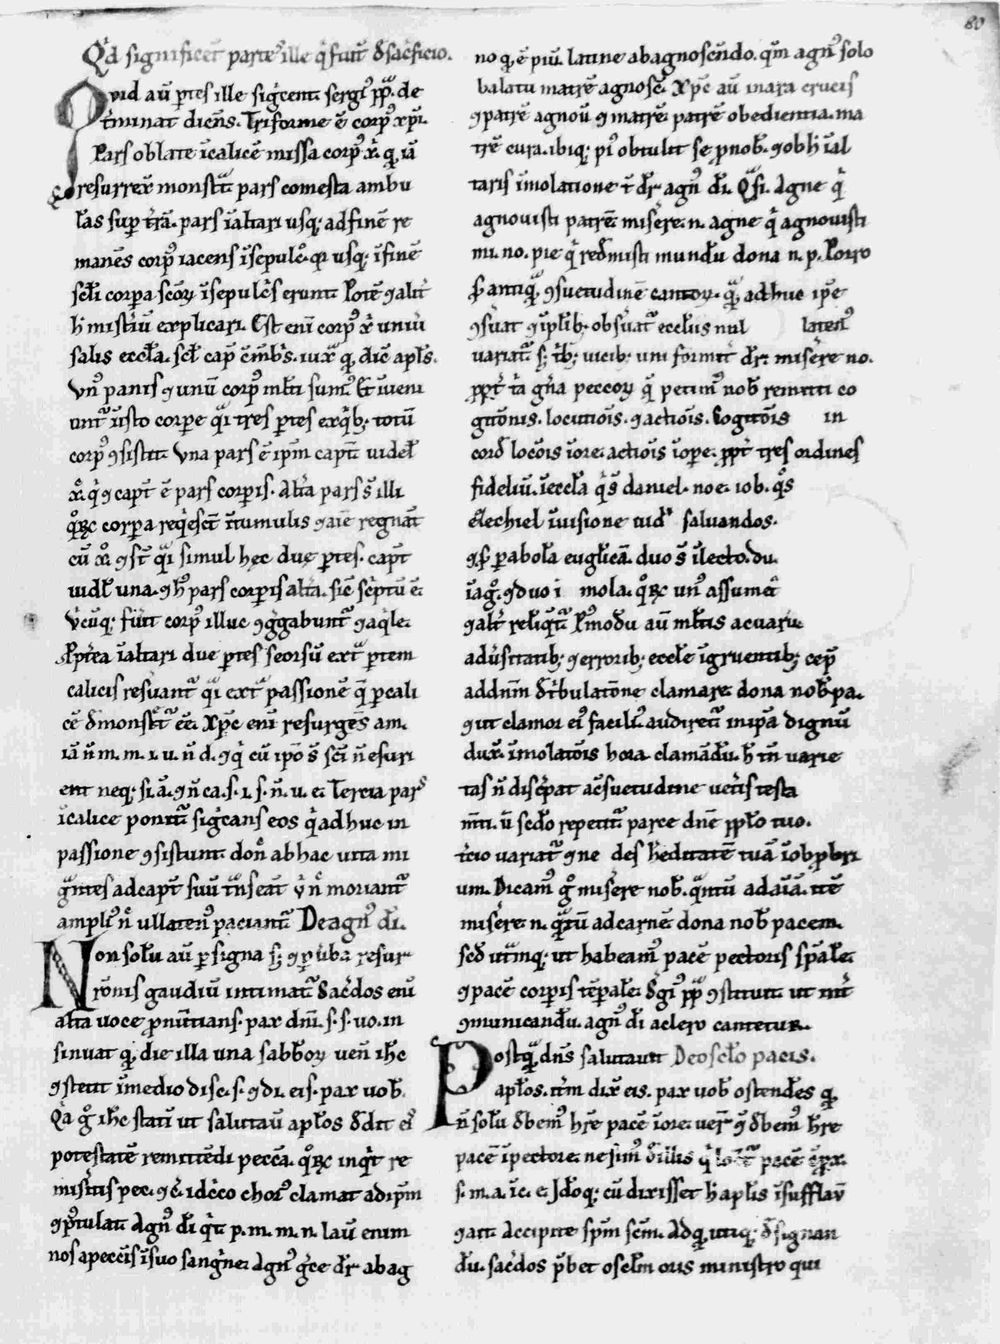 80
Qd significent partes ille q̄ fiunt ď sac̓ficio.
Quid aū ꝑtes ille sig̓cent. sergi᷒ pp̄. de
t̓minat dicēns. Triforme ē corp᷒ xp̄i.
Pars oblate ī calicē missa corp᷒ x̄. q̨ iā
resurrex̄ monst̄t̄. pars comesta ambu
lās suꝑ t̓rā. pars ī altari usq; ad finē re
manēs corp᷒ iacens ī sepulc̄. q̨ usq; ī finē
sc̄i corpa sc̄oꝝ ī sepulc̓s erunt. Potē ꝯalit̓
h̄ mistiū explicari. Est eni corp᷒ x̄ uniū
salis eccl̄a. scł cap̄ c̄ mēb̓s. iux̄ q̨ dic̄ apl̄s.
Vn᷒ panis ꝯ unū corp᷒ ml̄ti sum᷒. Et īueni
unt̄ ī isto corpe q̄i tres ꝑtes ex q̓b; totū
corp᷒ ꝯsistit. Vna pars ē ip̄m capt̄ uidel̄
x̄. q̓ ꝯ capt̄ ē pars corpis. Alt̓a pars s̄ illi
q̊ꝝ corpa reqēsc̄t ī tumulis ꝯ aīe regnāt
cū x̊. ꝯ st̄ q̄i simul hęc due ꝑtes. capt̄
uidł una. ꝯ h̄ pars corpis alt̄a. sic̄ sc̓ptū ē.
V̓ cūq; fūit corp᷒ illuc ꝯg̓gabunt̄ ꝯ aq̓le.
Ꝓpt̓ea ī altari due ꝑtes seorsū ext̄ ꝑtem
calicis res̓uant̄ q̄i ext̄ passionē q̄ ꝑ cali
cē ďmonst̄t̄ ēē. Xp̄c eni resurgēs am.
iā n̄ m. m. i. u. n̄ d. ꝯ q̓ cū ip̄o s̄ sc̄i n̄ esuri
ent neq; si. ā. ꝯ n̄ ca. s. i. s. n̄. u. e. Tercia pars
ī calice ponit̄ sig̓cans eos q̓ adhuc in
passione ꝯsistunt. donc̄ ab hac uita mi
g̓ntes ad capt̄ suū t̓nseāt v̓ n̄ moriant̄
ampli᷒ n̄ ullaten᷒ paciant̄. De agn᷒ di.
Non solū aū ꝑ signa s; ꝯ ꝑ uba resur
r̄onis gaudiū intimat̄. Sac̓dos eni
alta voce ꝓnūtians. pax dn̄i. s. s. uo. in
sinuat q̨ die illa una sabb̄oꝝ uen̄ ih̄c
ꝯ stetit ī medio disc̄. s. ꝯ di. eis. pax uob̄.
Qa g̊ ih̄c statī ut salutau̅ apl̄os ďdit ei᷒
potestatē remittēdi pecc̄a. q̊ꝝ inq̓t re
misitis pec. ꝯ c̄. idcc̄o chor᷒ clamat ad ip̄m
ꝯ p̄tulat. Agn᷒ di q̓ t. p. m. m. n. Lau̅ enim
nos a pecc̄is ī suo sang̓ne. Agn᷒ g̓ce dr̄ ab ag
no q̨ ē piū. latine ab agnoscēdo. qm̄ agn᷒ solo
balatu matrē agnosc̄. Xp̄c aū in ara crucis
ꝯ patrē agnou̅ ꝯ matrē. patrē obedientia. ma
trē cura. ibiq; p̄i obtulit se ꝓ nob̄. ꝯ ob h̄ ī al
taris īmolatione t̄ dr̄ agn᷒ di. Qsi. Agne q̓
agnouisti patrē. mis̓ere. n. agne q̓ agnouisti
mi. no. pie q̓ redmisti mundū dona n. p. Porro
ẜ antiq̄ ꝯsuetudinē cantoꝝ. q̄ adhuc ip̄e
ꝯs̓uat ꝯ ī pl̄ib᷒. obs̓uat̄ eccl̄iis nul laten᷒
uariat̄ s; t̓b; uicib; uni formit̄ dr̄. mis̓ere no.
ꝓpt̓ t̓a gn̄a peccoꝝ q̄ petim᷒ nob̄ remitti co
gitōnis. locutiōis. ꝯ actiōis. Cogitōis in
cord̄ locōis ī ore. actiōis ī ope. ꝓpt̓ tres ordines
fideliū. ī eccl̄a q̓s daniel. noe. iob. q̊s
eżechiel ī uisione uid̓ saluandos.
ꝯ ẜ ꝑabolā euglīcā. duo s̄ ī lecto. du
ī ag̊. ꝯ duo ī mola. q̊ꝝ un᷒ assumet̄
ꝯ alt̓ reliq̓t̄. P̓modū aū ml̄tis ac uariis
adu̓sitatib; ꝯ errorib; eccl̄e īgruentib; cep̄
ad dnm̄ ď t̓bulatōne clamare. dona nob̄ pa.
ꝯ ut clamor ei᷒ facili᷒ audiret̄. in ip̄a dignū
dux̄. īmolatōis hora clamādū. h̄ tn̄ uarie
tas n̄ disc̓pat a c̄suetudine uet̓is testa
m̄ti. ū sed̄o repetit̄. parce dn̄e pplō tuo.
t̓cio uariat̄ ꝯ ne des h̓editatē tuā ī obꝓbri
um. Dicam᷒ g̊ mis̓ere nob̄. q̄ntū ad aīā. itē
mis̓ere n. q̄ntū ad carnē. dona nob̄ pacem.
sed ut̓inq; ut habeam᷒ pacē pectoris spālē.
ꝯ pacē corpis tēpalē. Sgi᷒ pp̄ ꝯstituit ut int̓
ꝯmunicandū. agn᷒ di a clero cantetur.
Postq̄ dn̄s salutauit De osclo pacis.
apl̄os. it̓m dix̄ eis. pax uob̄ ostendēs q̨
n̄ solū ďbem᷒ hr̄e pacē ī ore. uer̄ ꝯ ďbem᷒ hr̄e
pacē ī pectore. ne sim᷒ ď illis q̓ pacē
s. m. a. ī c. e. Id̄oq; cū dixisset h̄ apl̄is ī sufflau̅
ꝯ ait. Accipite sp̄m sc̄m. Ad q̨ utiq; ď signan
dū. sac̓dos p̓bet osclm̄ oris ministro qui